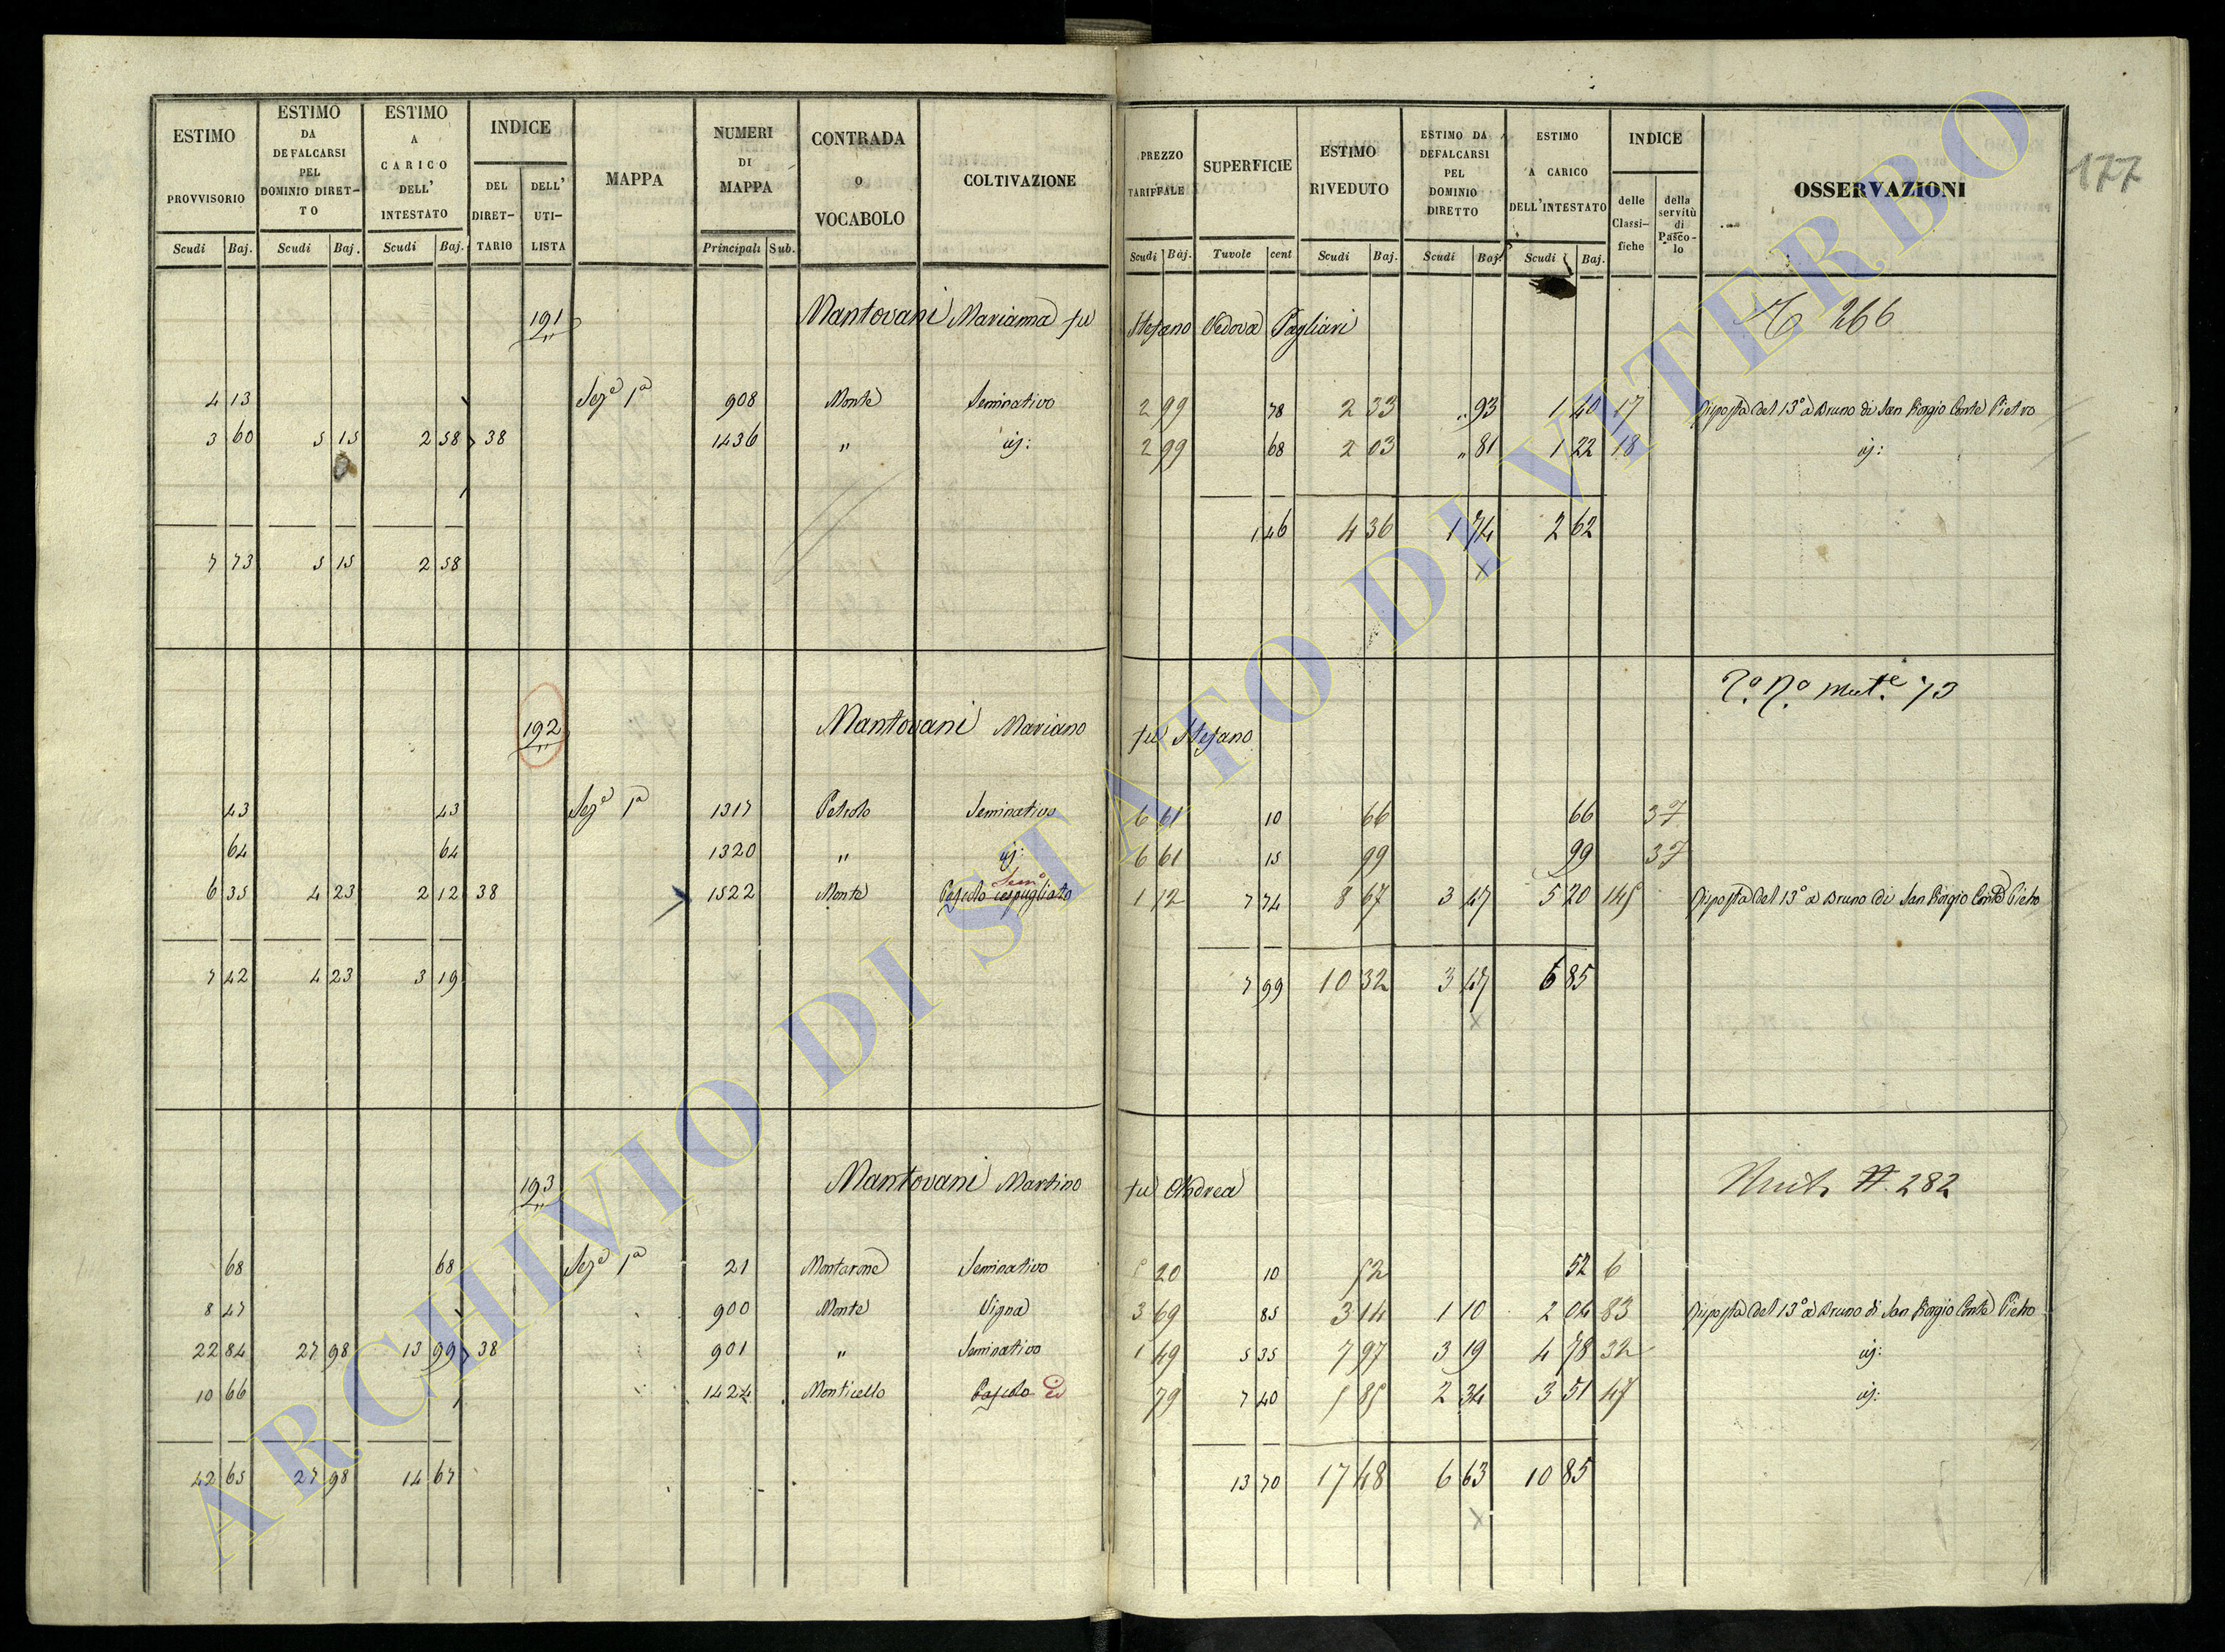 177
ESTIMO PROVVISORIO Scudi Baj.
ESTIMO DA DEFALCARSI PEL DOMINIO DIRETTO Scudi Baj.
ESTIMO A CARICO DELL' INTESTATO Scudi Baj.
INDICE DEL DIRETTARIO DELL' UTILISTA
MAPPA
NUMERI DI MAPPA Principali Sub.
CONTRADA O VOCABOLO
COLTIVAZIONE
PREZZO TARIFFALE Scudi Baj.
SUPERFICIE Tavole cent
ESTIMO RIVEDUTO Scudi Baj.
ESTIMO DA DEFALCARSI PEL DOMINIO DIRETTO Scudi Baj.
ESTIMO A CARICO DELL'INTESTATO Scudi Baj.
INDICE delle Classifiche della servitù di Pascolo
OSSERVAZIONI
191 Mantovani Marianna fu Stefano Vedova Pagliari 266
4 13 Seze 1a 908 Monte Seminativo 2 99 78 2 33 " 93 1 40 17 Risposta del 13° a Bruno di San Giorgio Conte Pietro
3 60 5 15 2 58 38 1436 " id: 2 99 68 2 03 " 81 1 22 18 id:
1 46 4 36 1 74 2 62
7 73 5 15 2 58
x
73
192 Mantovani Mariano fu Stefano
43 43 Seze 1a 1317 Seminativo 6 61 10 66 66 37
64 64 1320 " id: 6 61 15 99 99 37
6 35 4 23 2 12 38 1522 Monte Pascolo cespugliato Semo 1 12 7 74 8 67 3 47 5 20 145 Risposta del 13° a Bruno di San Giorgio Conte Pietro
7 42 4 23 3 19 7 99 10 32 3 47 6 85
x
193 Mantovani Martino fu Andrea 282
68 68 Seze 1a 21 Montarone Seminativo 5 20 10 52 52 6
8 47 900 Monte Vigna 3 69 85 3 14 1 10 2 04 83 Risposta del 13° a Bruno di San Giorgio Conte Pietro
22 84 27 98 13 99 38 901 " Seminativo 1 49 5 35 7 97 3 19 4 78 32 id:
10 66 1424 Monticello Pascolo 79 7 40 5 85 2 34 3 51 47 id:
42 65 27 98 14 67 13 70 17 48 6 63 10 85
x
ARCHIVIO DI STATO DI VITERBO